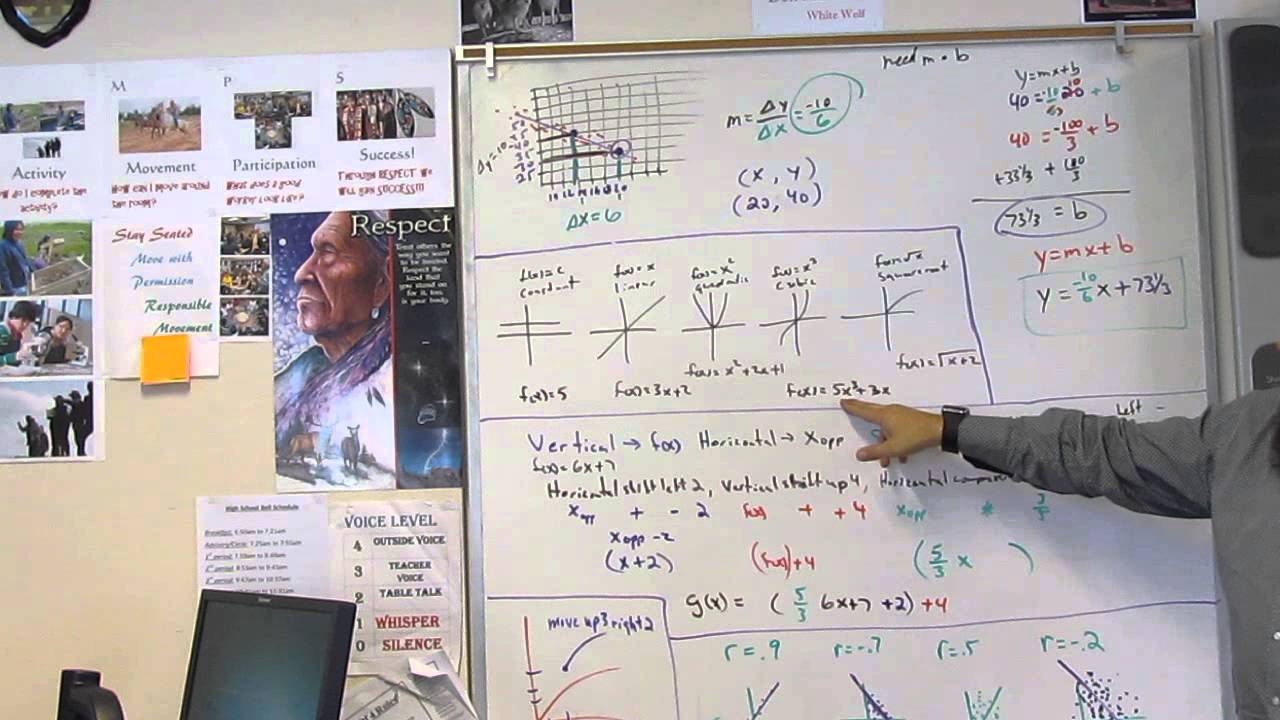 White Wolf
M
P
S
Activity
Movement
Participation
Success!
How can I move around
the room?
What does a good
Worker Look Like?
Through RESPECT We
Will gain SUCCESS!!!
activity?
Stay Seated
Move with
Permission
Responsible
Movement
Respect
Treat others the
way you want
to be treated.
Respect the
land that
you stand on
for it, too,
is your body.
High School Bell Schedule
VOICE LEVEL
4 OUTSIDE VOICE
3 TEACHER VOICE
2 TABLE TALK
1 WHISPER
0 SILENCE
need m + b
m = Δy/Δx = -10/6
(x, y)
(20, 40)
Δy=10
Δx=6
y=mx+b
40 = -100/3 + b
+33 1/3 + 100/3
73 1/3 = b
y=mx+b
y = -10/6 x + 73 1/3
f(x)=c
constant
f(x)=x
linear
f(x)=x²
quadratic
f(x)=x³
cubic
f(x)=√x
square root
f(x)=5
f(x)=3x+2
f(x)=x²+2x+1
f(x)=5x³+3x
f(x)=√x+2
Left -
Vertical → f(x) Horizontal → x opp
f(x)=6x+7
Horizontal shift left 2, Vertical shift up 4, Horizontal
x opp + - 2
f(x) + +4
x opp *
x opp -2
(x+2)
(f(x))+4
(5/3 x )
g(x) = (5/3 6x+7 +2) +4
move up 3 right 2
r=.9
r=-.7
r=.5
r=-.2